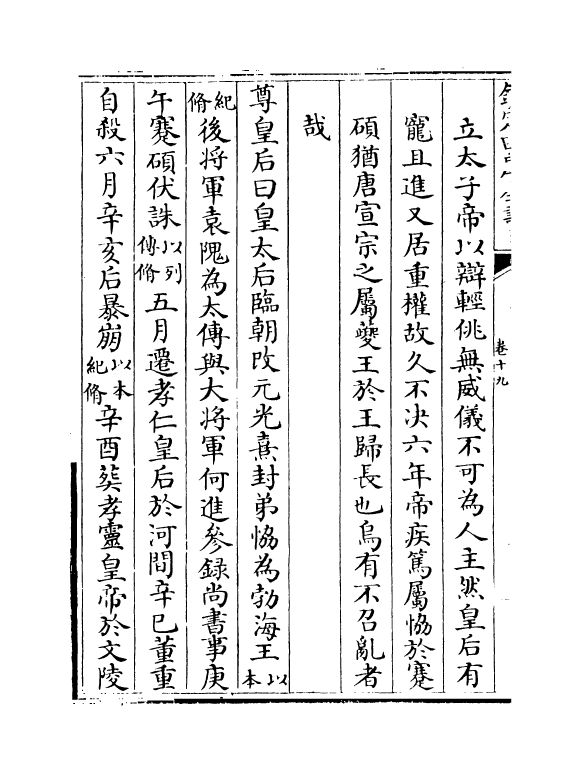 欽定四庫全書
卷十九
立太子帝以辯輕佻無威儀不可為人主然皇后有
寵且進又居重權故久不决六年帝疾篤屬恊於蹇
碩猶唐宣宗之屬夔王於王歸長也烏有不召亂者
哉
尊皇后曰皇太后臨朝改元光熹封弟恊為勃海王以本
紀脩後將軍袁隗為太傅與大將軍何進參録尚書事庚
午蹇碩伏誅以列傳脩五月遷孝仁皇后於河間辛巳董重
自殺六月辛亥后暴崩以本紀脩辛酉葬孝靈皇帝於文陵